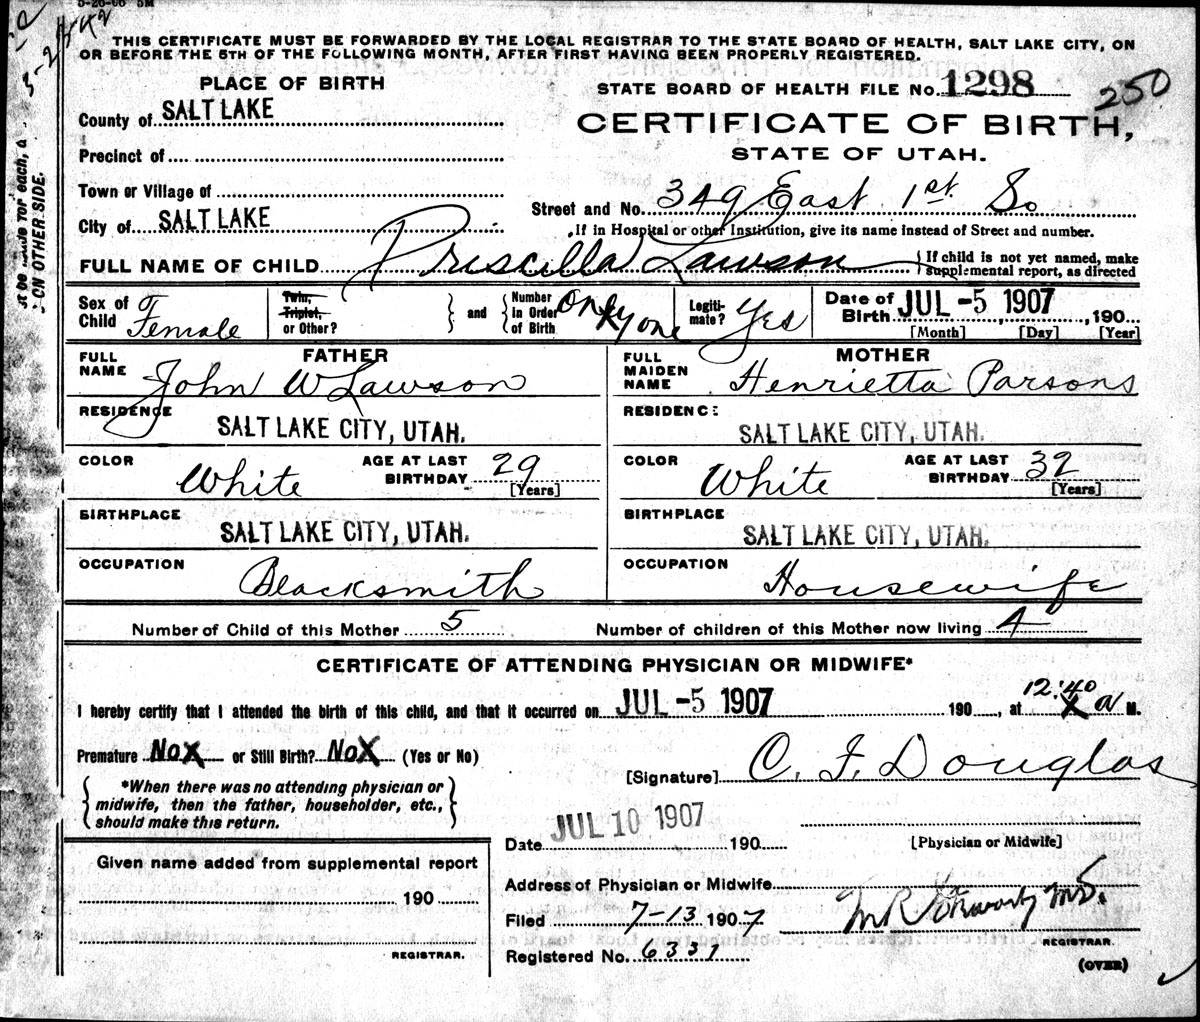 5-26-06 5M
THIS CERTIFICATE MUST BE FORWARDED BY THE LOCAL REGISTRAR TO THE STATE BOARD OF HEALTH, SALT LAKE CITY, ON
OR BEFORE THE 5TH OF THE FOLLOWING MONTH, AFTER FIRST HAVING BEEN PROPERLY REGISTERED.
PLACE OF BIRTH
STATE BOARD OF HEALTH FILE No. 1298 250
County of SALT LAKE
CERTIFICATE OF BIRTH,
Precinct of
STATE OF UTAH.
Town or Village of
Street and No. 349 East 1st So
City of SALT LAKE
If in Hospital or other Institution, give its name instead of Street and number.
FULL NAME OF CHILD Priscilla Lawson { If child is not yet named, make
supplemental report, as directed
Sex of Child Female
Twin, Triplet, or Other? } and { Number in Order of Birth only one
Legitimate? Yes
Date of Birth JUL -5 1907, 190
[Month] [Day] [Year]
FATHER
FULL NAME John W Lawson
MOTHER
FULL MAIDEN NAME Henrietta Parsons
RESIDENCE SALT LAKE CITY, UTAH.
RESIDENCE SALT LAKE CITY, UTAH.
COLOR White AGE AT LAST BIRTHDAY 29 [Years]
COLOR White AGE AT LAST BIRTHDAY 32 [Years]
BIRTHPLACE SALT LAKE CITY, UTAH.
BIRTHPLACE SALT LAKE CITY, UTAH.
OCCUPATION Blacksmith
OCCUPATION Housewife
Number of Child of this Mother 5 Number of children of this Mother now living 4
CERTIFICATE OF ATTENDING PHYSICIAN OR MIDWIFE*
I hereby certify that I attended the birth of this child, and that it occurred on JUL -5 1907 190, at 12:40 a M.
Premature No or Still Birth? No (Yes or No)
[Signature] C. F. Douglas
*When there was no attending physician or
midwife, then the father, householder, etc.,
should make this return.
JUL 10 1907
Date 190
[Physician or Midwife]
Given name added from supplemental report
190
REGISTRAR.
Address of Physician or Midwife
Filed 7-13 1907
REGISTRAR.
Registered No. 6331
(OVER)
ON OTHER SIDE.